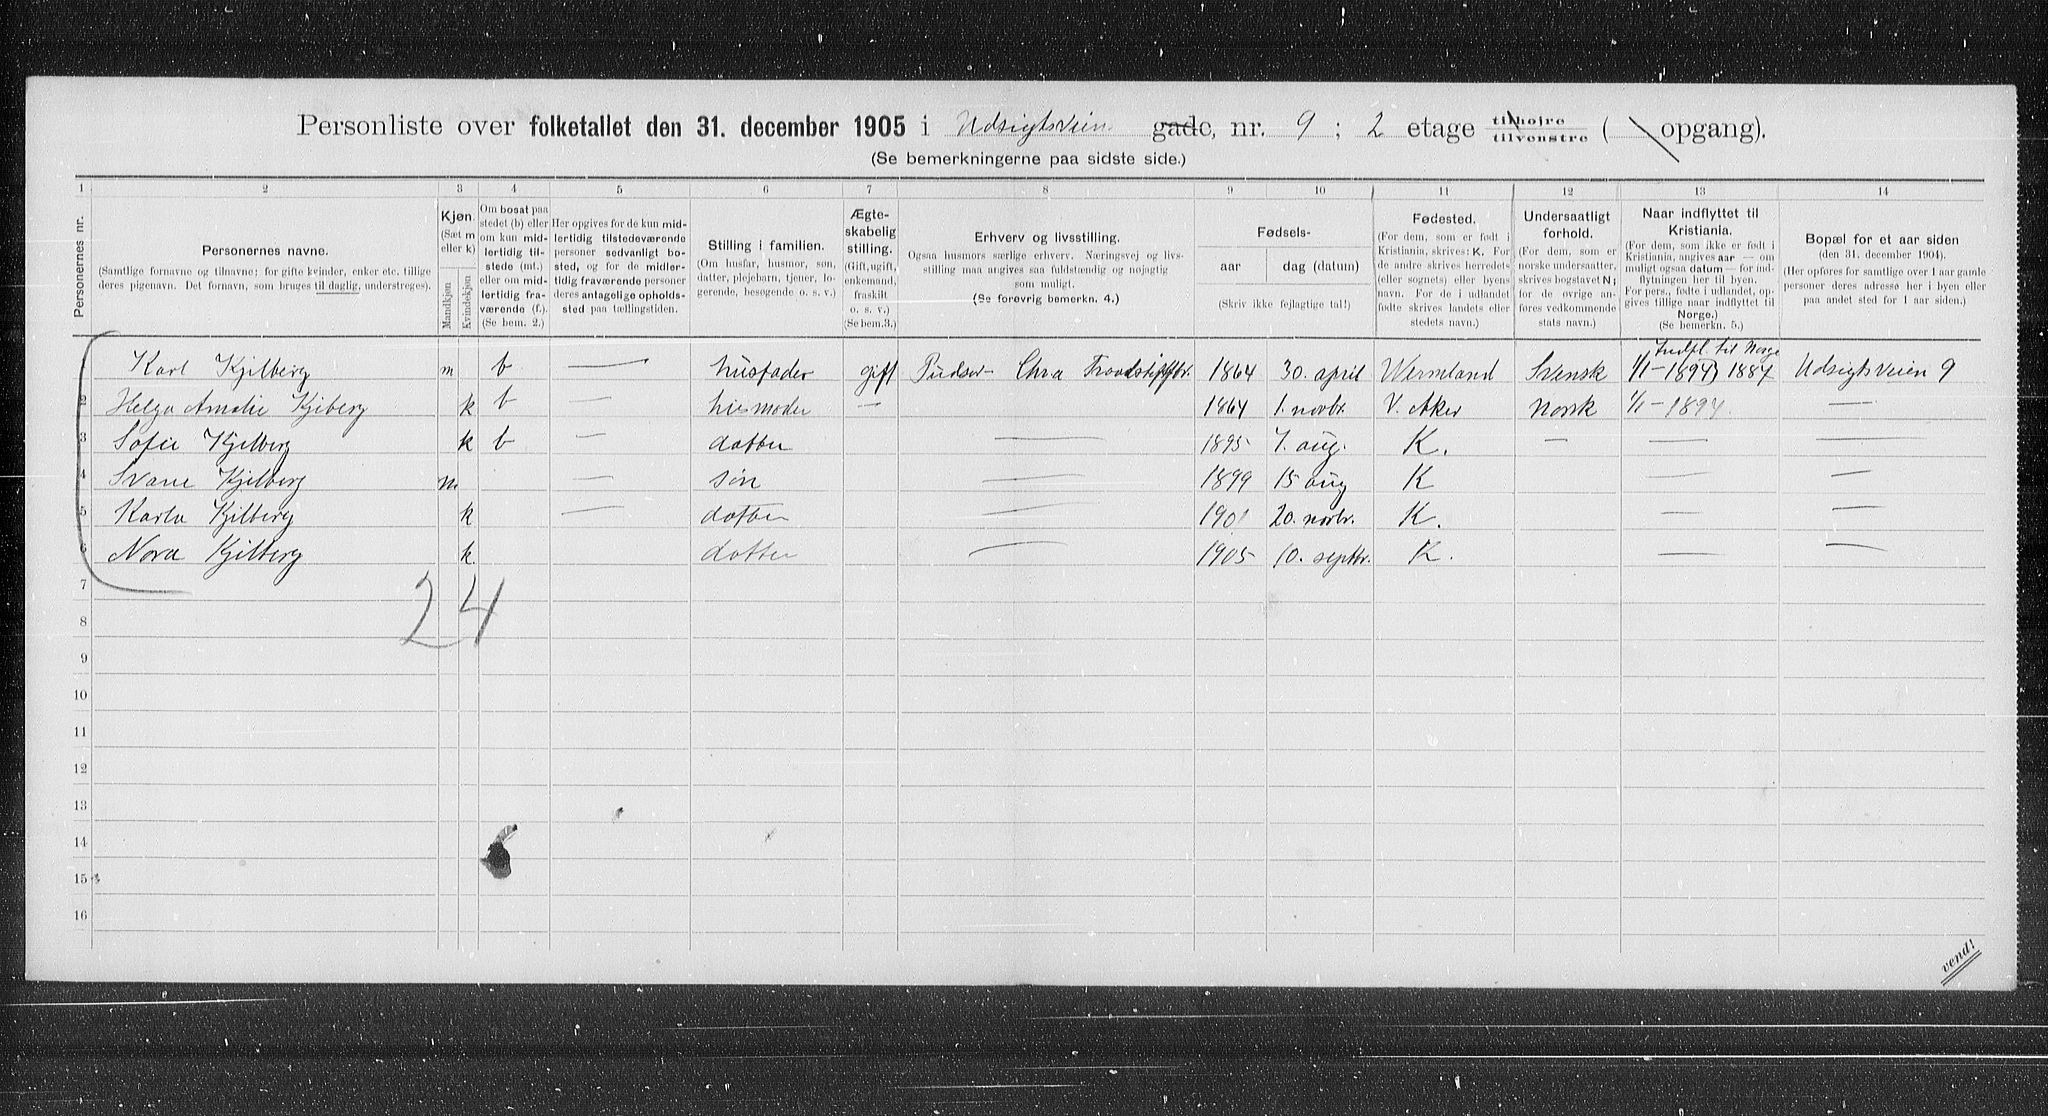 Personliste over folketallet den 31. december 1905 i Udsigtsveien gade, nr. 9 ; 2 etage tilhøjre tilvenstre ( opgang).
(Se bemerkningerne paa sidste side.)
1 2 3 4 5 6 7 8 9 10 11 12 13 14
Personernes nr.
Personernes navne.
(Samtlige fornavne og tilnavne; for gifte kvinder, enker etc. tillige
deres pigenavn. Det fornavn, som bruges til daglig, understreges).
Kjøn.
(Sæt m
eller k)
Mandkjøn
Kvindekjøn
Om bosat paa
stedet (b) eller
om kun mid-
lertidig til-
stede (mt.)
eller om mid-
lertidig fra-
værende (f.).
(Se bem. 2.)
Her opgives for de kun mid-
lertidig tilstedeværende
personer sedvanlig bo-
sted, og for de midler-
tidig fraværende personer
deres antagelige opholds-
sted paa tællingstiden.
Stilling i familien.
(Om husfar, husmor, søn,
datter, plejebarn, tjener, lo-
gerende, besøgende o. s. v.)
Ægte-
skabelig
stilling.
(Gift, ugift,
enkemand,
fraskilt
o. s. v.)
(Se bem.3.)
Erhverv og livsstilling.
Ogsaa husmors særlige erhverv. Næringsvej og livs-
stilling maa angives saa fuldstændig og nøjagtig
som muligt.
(Se forøvrig bemerkn. 4.)
Fødsels-
aar dag (datum)
(Skriv ikke fejlagtige tal!)
Fødested.
(For dem, som er født i
Kristiania, skrives: K. For
de andre skrives herredets
(eller sognets) eller byens
navn. For de i udlandet
fødte skrives landets eller
stedets navn.)
Undersaatligt
forhold.
(For dem, som er
norske undersaatter,
skrives bogstavet N;
for de øvrige an-
føres vedkommende
stats navn.)
Naar indflyttet til
Kristiania.
(For dem, som ikke er født i
Kristiania, angives aar — om
muligt ogsaa datum — for ind-
flytningen her til byen.
For pers., fødte i udlandet, op-
gives tillige naar indflyttet til
Norge.)
(Se bemerkn. 5.)
Bopæl for et aar siden
(den 31. december 1904).
(Her opføres for samtlige over 1 aar gamle
personer deres adresse her i byen eller
paa andet sted for 1 aar siden.)
Indfl. til Norge
Karl Kjilberg m b — husfader gift Pudser 1864 30. april Wermland Svensk 1/1-1894 1887 Udsigtsveien 9
2 Helga Amalie Kjiberg k b — husmoder — 1864 1. novbr. V. Aker Norsk 1/1-1894. —
3 Sofie Kjilberg k b — datter — 1895 7. aug. K. — — —
4 Svane Kjilberg m — søn — 1899 15 aug K — —
5 Karla Kjilberg k — datter — 1901 20. novbr. K. — —
6 Nora Kjilberg k. datter — 1905 10. septbr. K. — —
7
24
8
9
10
11
12
13
14
15
16
vend!